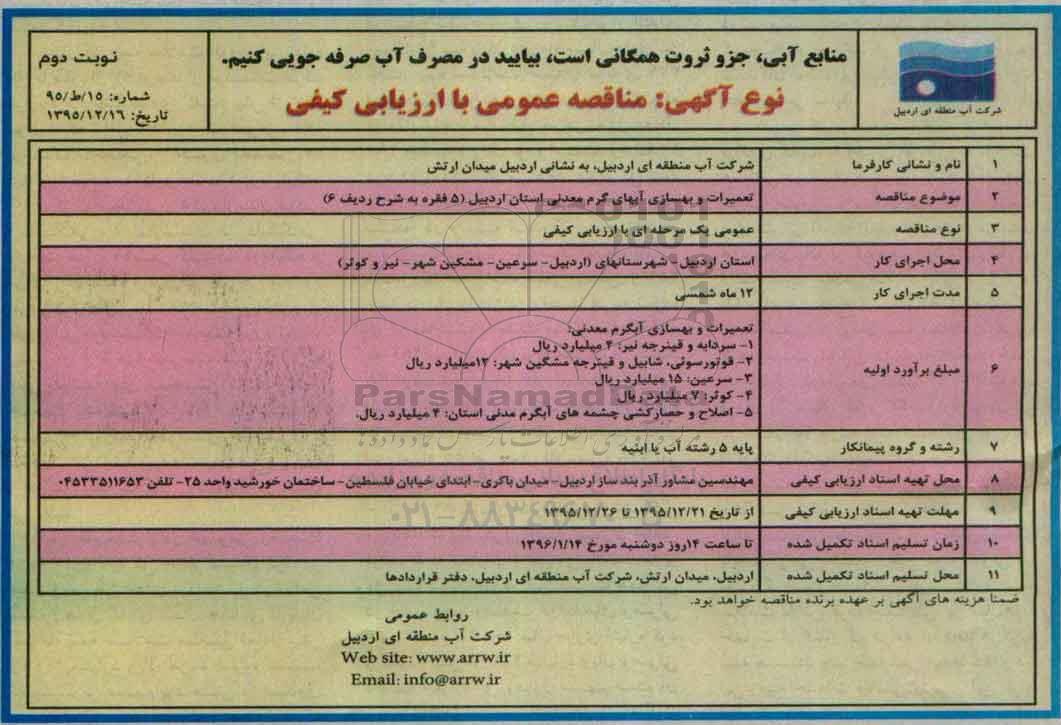 منابع آبی، جزو ثروت همگانی است، بیایید در مصرف آب صرفه جویی کنیم.
نوع آگهی: مناقصه عمومی با ارزیابی کیفی
شرکت آب منطقه ای اردبیل
نوبت دوم
شماره: ۱۵/ط/۹۵
تاریخ: ۱۳۹۵/۱۲/۱۶
۱ نام و نشانی کارفرما شرکت آب منطقه ای اردبیل، به نشانی اردبیل میدان ارتش
۲ موضوع مناقصه تعمیرات و بهسازی آبهای گرم معدنی استان اردبیل (۵ فقره به شرح ردیف ۶)
۳ نوع مناقصه عمومی یک مرحله ای با ارزیابی کیفی
۴ محل اجرای کار استان اردبیل- شهرستانهای (اردبیل- سرعین- مشگین شهر- نیر و کوثر)
۵ مدت اجرای کار ۱۲ ماه شمسی
۶ مبلغ برآورد اولیه تعمیرات و بهسازی آبگرم معدنی:
۱- سردابه و قینرجه نیر: ۴ میلیارد ریال
۲- قوتورسوئی، شابیل و قینرجه مشگین شهر: ۱۲میلیارد ریال
۳- سرعین: ۱۵ میلیارد ریال
۴- کوثر: ۷ میلیارد ریال
۵- اصلاح و حصارکشی چشمه های آبگرم مدنی استان: ۴ میلیارد ریال.
۷ رشته و گروه پیمانکار پایه ۵ رشته آب یا ابنیه
۸ محل تهیه اسناد ارزیابی کیفی مهندسین مشاور آذر بند ساز اردبیل- میدان باکری- ابتدای خیابان فلسطین- ساختمان خورشید واحد ۲۵- تلفن ۰۴۵۳۳۵۱۱۶۵۳
۹ مهلت تهیه اسناد ارزیابی کیفی از تاریخ ۱۳۹۵/۱۲/۲۱ تا ۱۳۹۵/۱۲/۲۶
۱۰ زمان تسلیم اسناد تکمیل شده تا ساعت ۱۴روز دوشنبه مورخ ۱۳۹۶/۱/۱۴
۱۱ محل تسلیم اسناد تکمیل شده اردبیل، میدان ارتش، شرکت آب منطقه ای اردبیل، دفتر قراردادها
ضمنا هزینه های آگهی بر عهده برنده مناقصه خواهد بود.
روابط عمومی
شرکت آب منطقه ای اردبیل
Web site: www.arrw.ir
Email: info@arrw.ir